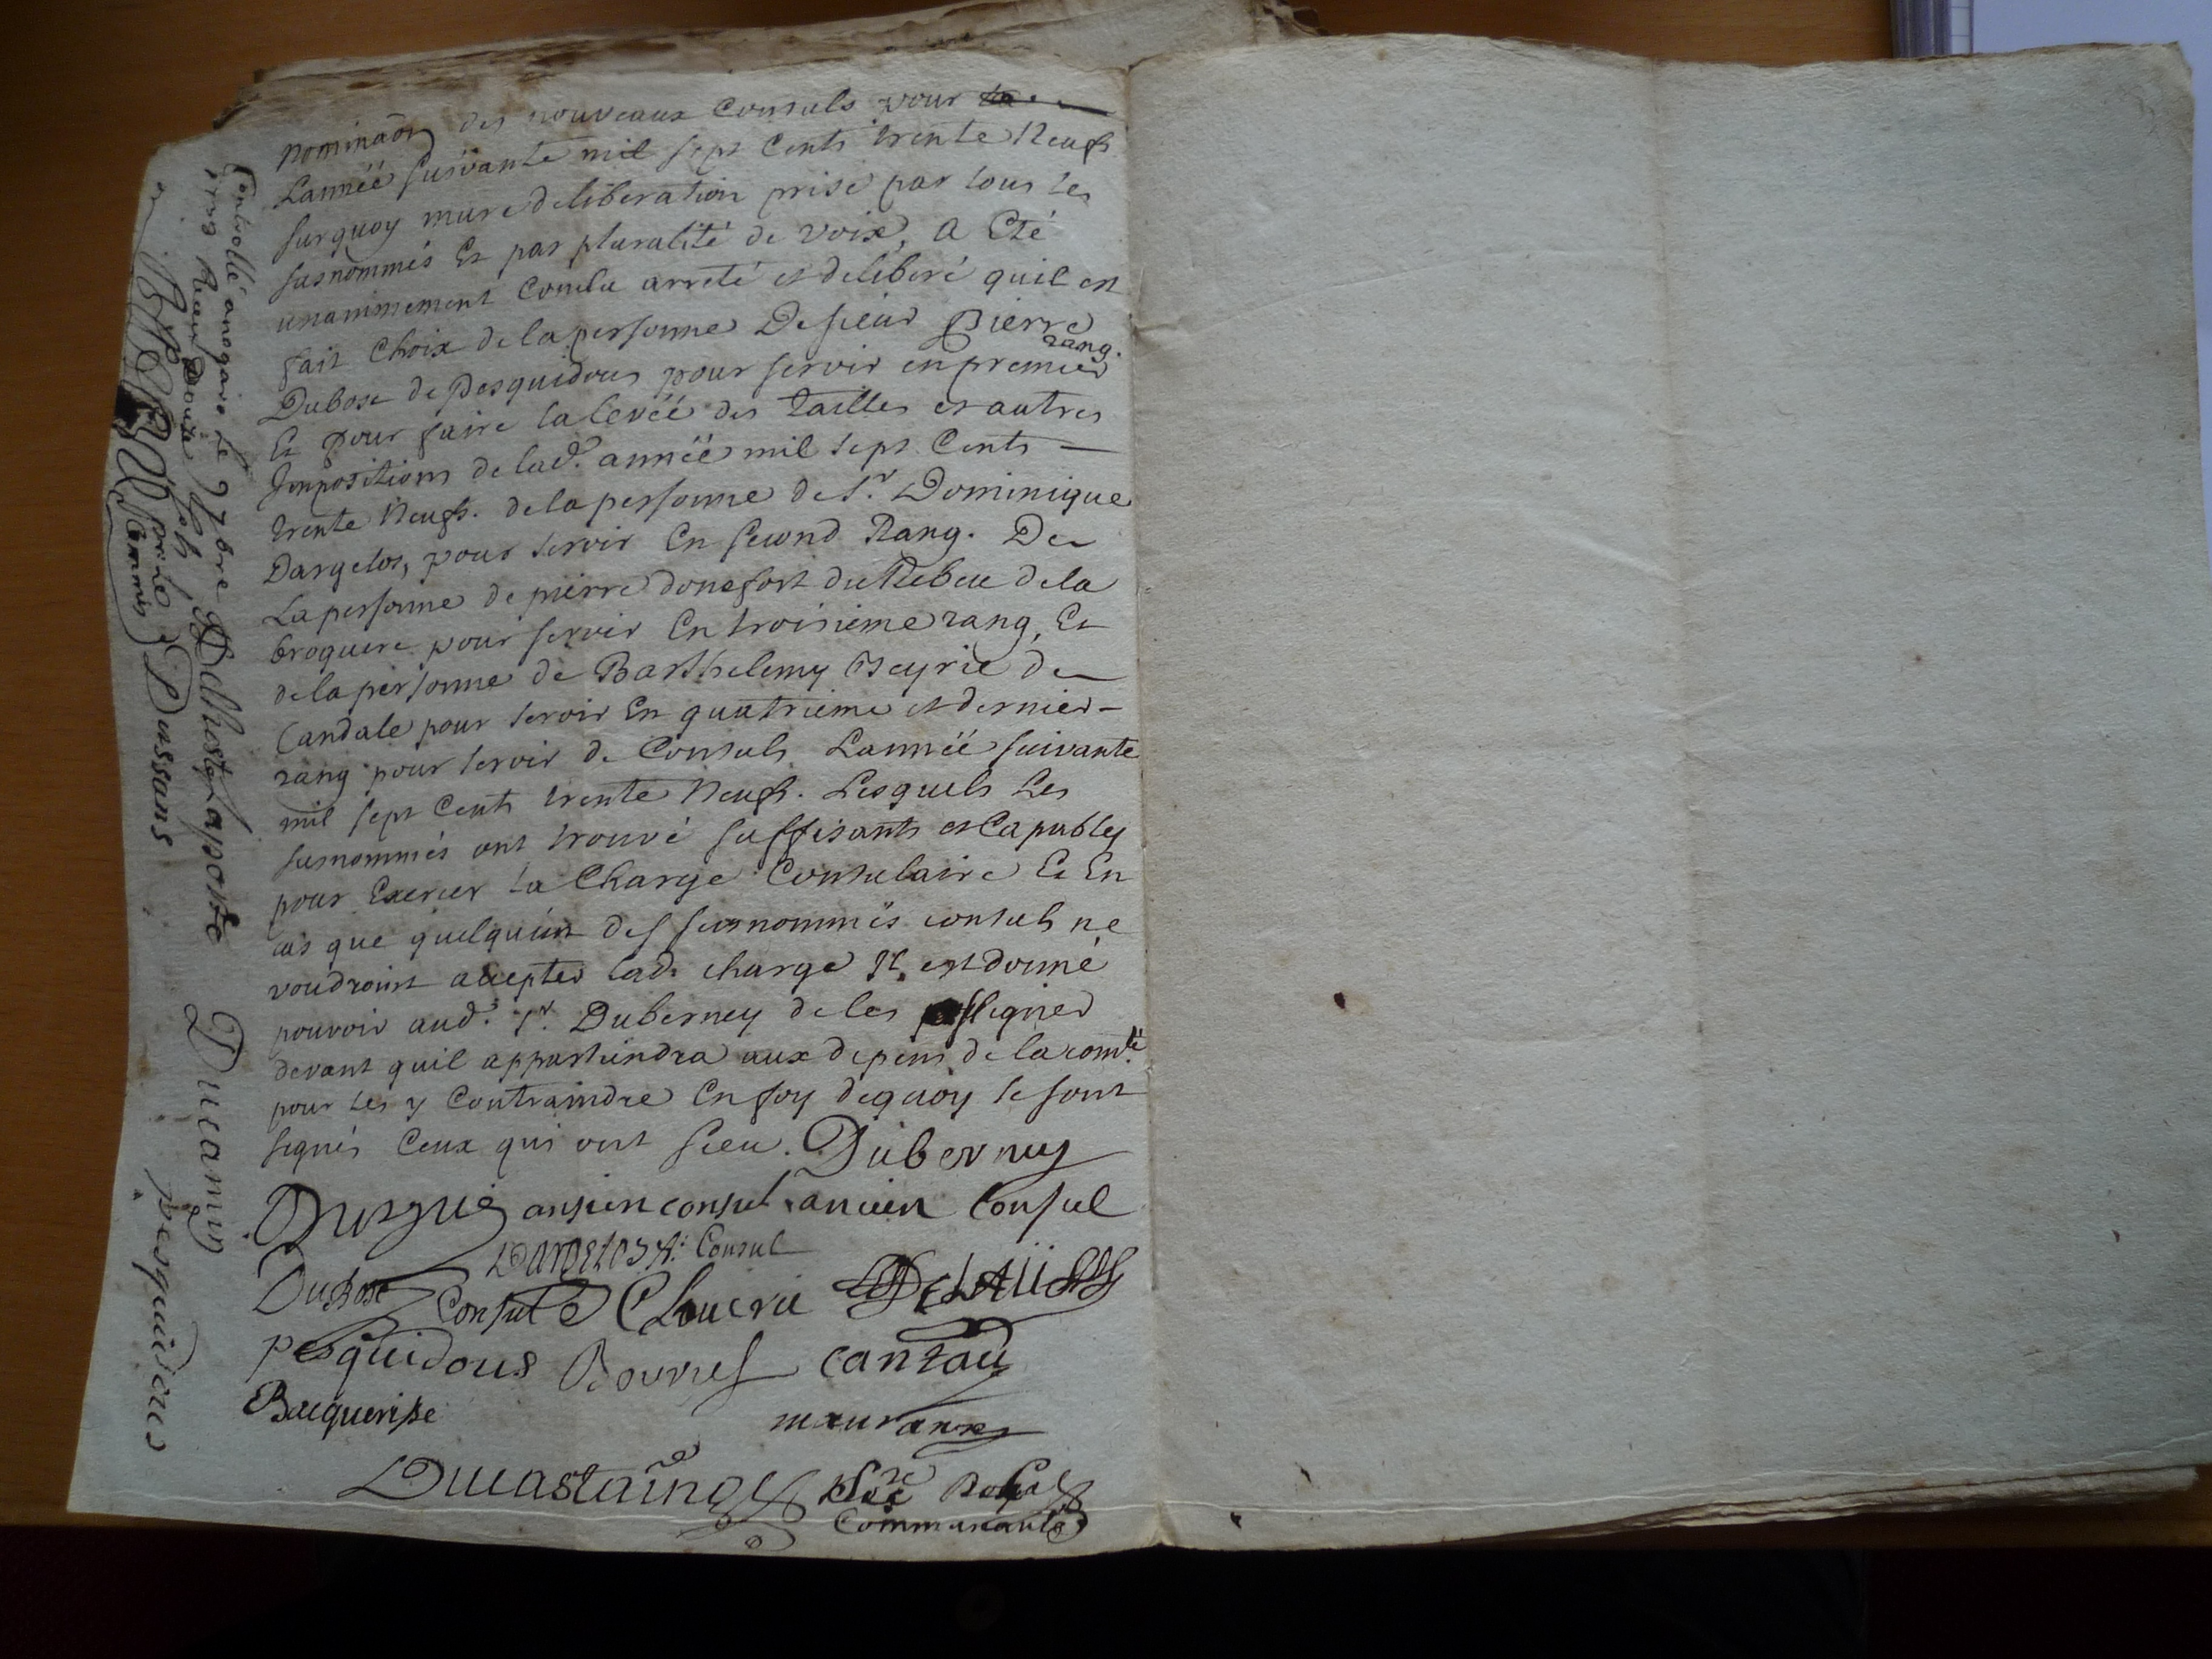 nominaõn des nouveaux Consuls pour la
Lannéé suivante mil sept Cents trente Neufs
surquoy mure deliberation prise par tous les
susnommés Et par pluralité de voix, a Eté
unanimement Conclu arreté et deliberé quil est
fait Choix de la personne De sieur Pierre
Dubosc de Pesquidous pour servir en premier rang.
Et pour faire la levéé des tailles et autres
Impositions de lad.e annéé mil sept Cents
trente Neufs. de la personne de Sr. Dominique
Dargelos, pour servir En second Rang. De
La personne de pierre donefort du de la
broquere pour servir En troisieme rang, Et
de la personne de Barthelemy Peyrie de
Candale pour servir En quatrieme et dernier
rang pour servir de Consuls Lannéé suivante
mil sept Cents trente Neufs. Lesquels Les
susnommés ont trouvé suffisants et Capables
pour Exercer la Charge Consulaire Et En
cas que quelquun des susnommés consuls ne
voudroint accepter lad. charge Il est donné
pouvoir aud. Sr. Duberney de les assigner
devant quil appartiendra aux depens de la com.té
pour les y Contraindre En foy dequoy se sont
signés Ceux qui ont sceu. Duberney
ansien consul ancien Consul
Dargelos A. Consul
Dubosc Consul
pesquidous cantau
Bacquerisse
mauranx
Ducastaing
Communauté
Controllé anogaro le 7bre
1738 Recu Douze sols
Commis
Delhoste Laporte
Dassans
Ducanin
pesquidous